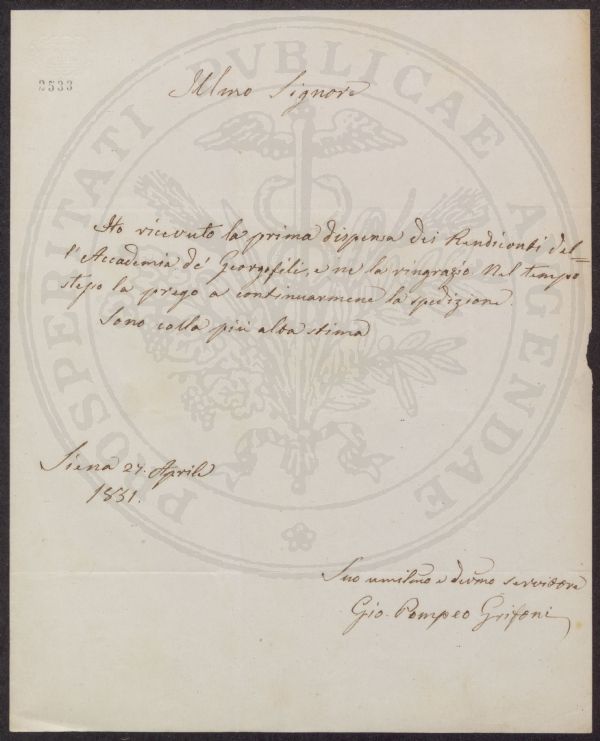 2533
PROSPERITATI PVBLICAE AVGENDAE
Illmo Signore
Ho ricevuto la prima dispensa dei Rendiconti del=
l'Accademia de' Georgofili, e ne la ringrazio Nel tempo
stesso la prego a continuarmene la spedizione.
Sono colla più alta stima
Siena 27. Aprile
1851.
Suo umilmo e devmo servitore
Gio. Pompeo Grifoni